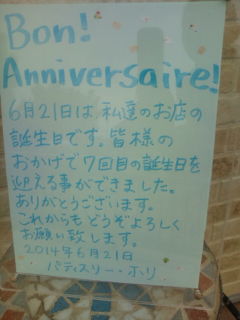 Bon!
Anniversaire!
6月21日は、私達のお店の
誕生日です。皆様の
おかげで7回目の誕生日を
迎える事ができました。
ありがとうございます。
これからもどうぞよろしく
お願い致します。
2014年6月21日
パティスリー・ホリ